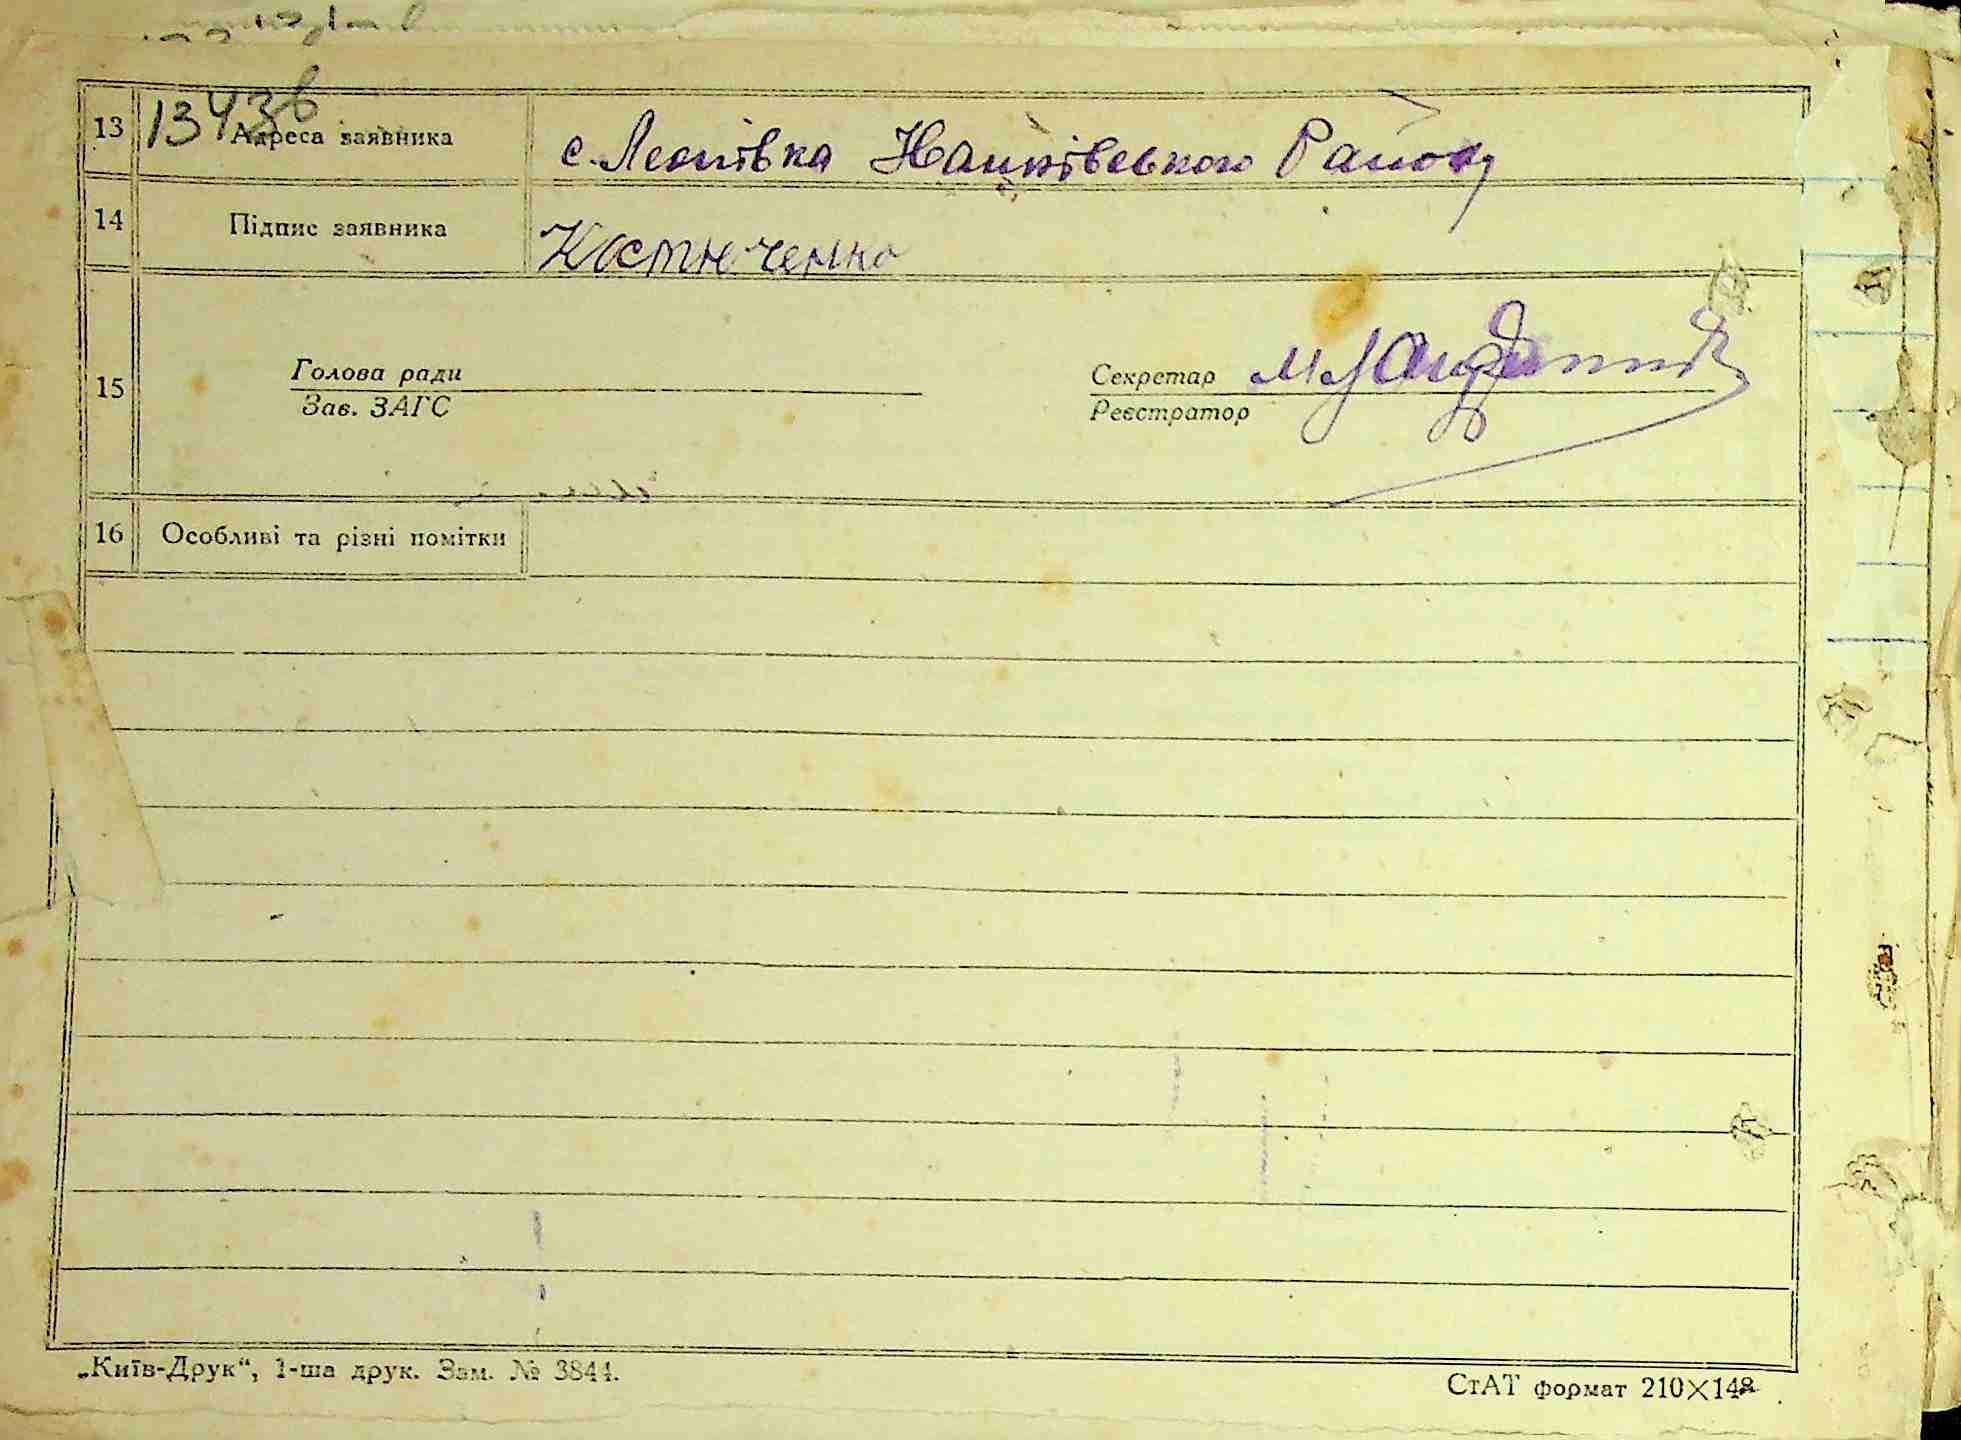 13 1343в Адреса заявника с. Леонівка Району
14 Підпис заявника Костюченко
15 Голова ради
Зав. ЗАГС
Секретар
Реєстратор
16 Особливі та різні помітки
„Київ-Друк“, 1-ша друк. Зам. № 3844.
СтАТ формат 210×148